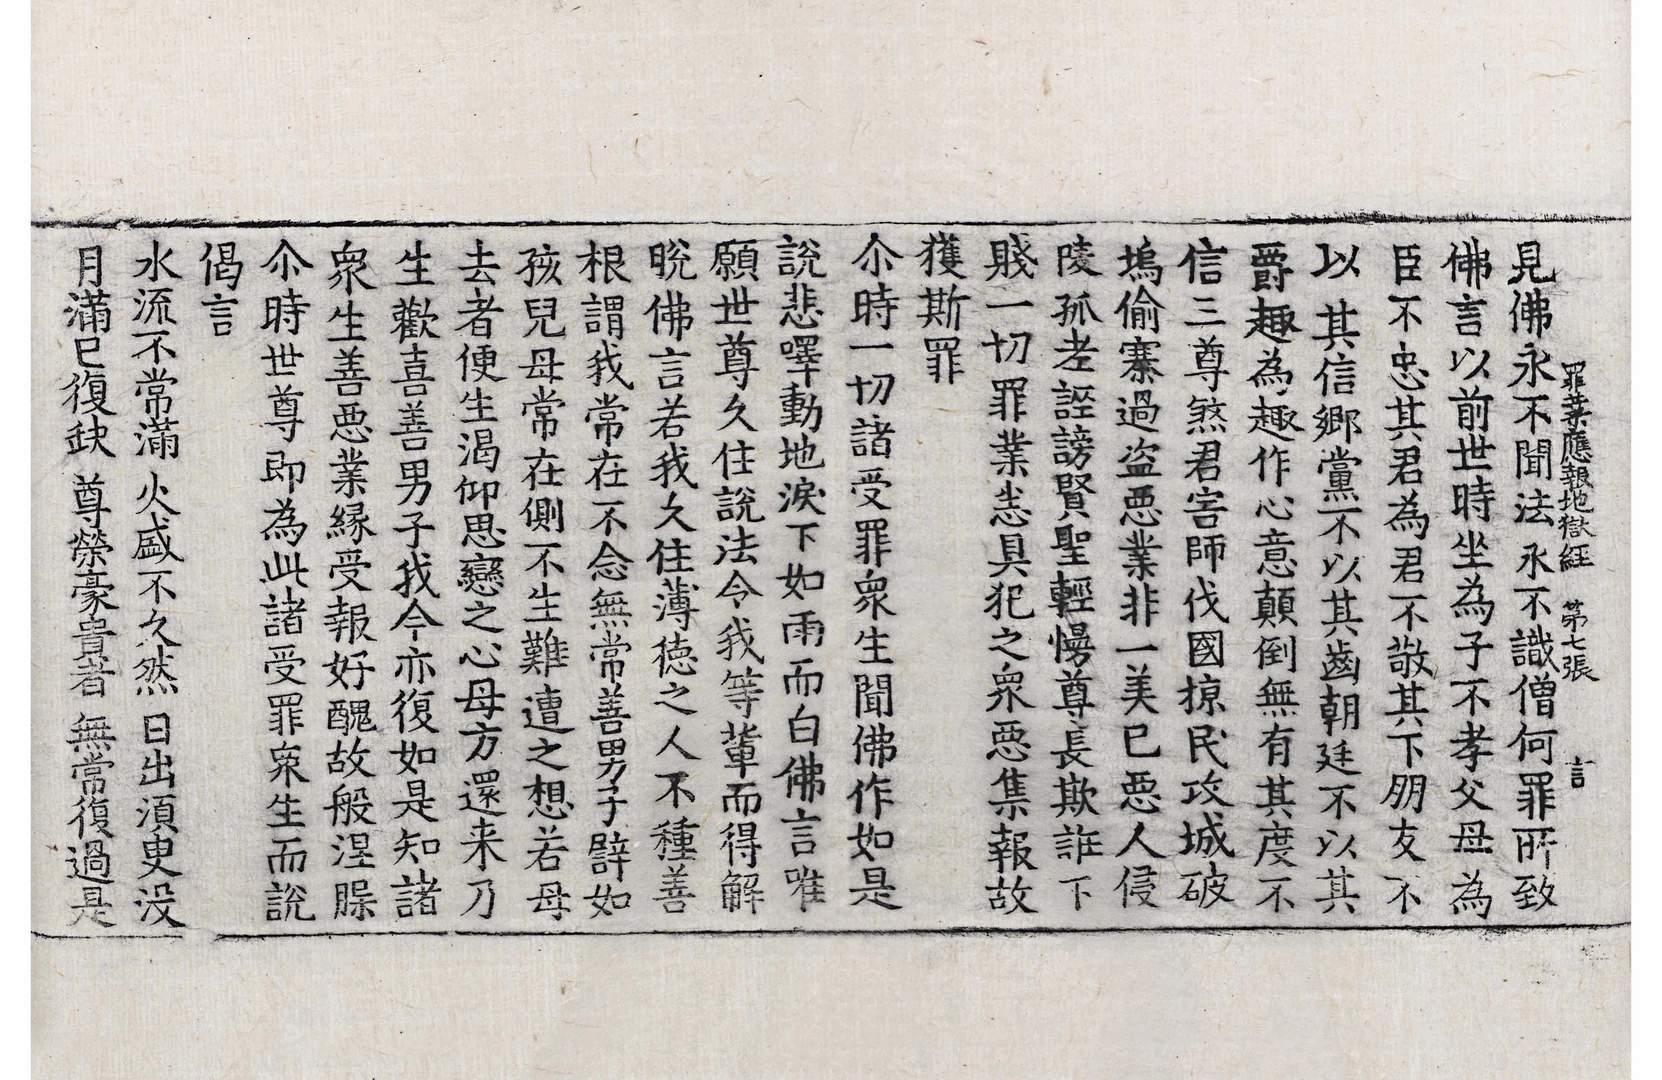 罪業應報地獄経 第七張 言
見佛永不聞法永不識僧何罪所致
佛言以前世時坐為子不孝父母為
臣不忠其君為君不敬其下朋友不
以其信鄉黨不以其齒朝廷不以其
爵趣為趣作心意顛倒無有其度不
信三尊煞君害師伐國掠民攻城破
塢偷寨過盗惡業非一美已惡人侵
陵孤老誣謗賢聖輕慢尊長欺誑下
賤一切罪業悉具犯之衆惡集報故
獲斯罪
尒時一切諸受罪衆生聞佛作如是
說悲㘁動地淚下如雨而白佛言唯
願世尊久住說法令我等輩而得解
脫佛言若我久住薄德之人不種善
根謂我常在不念無常善男子譬如
孩兒母常在側不生難遭之想若母
去者便生渴仰思戀之心母方還来乃
生歡喜善男子我今亦復如是知諸
衆生善惡業緣受報好醜故般涅槃
尒時世尊即為此諸受罪衆生而說
偈言
水流不常滿 火盛不久然 日出須臾没
月滿已復缺 尊榮豪貴者 無常復過是